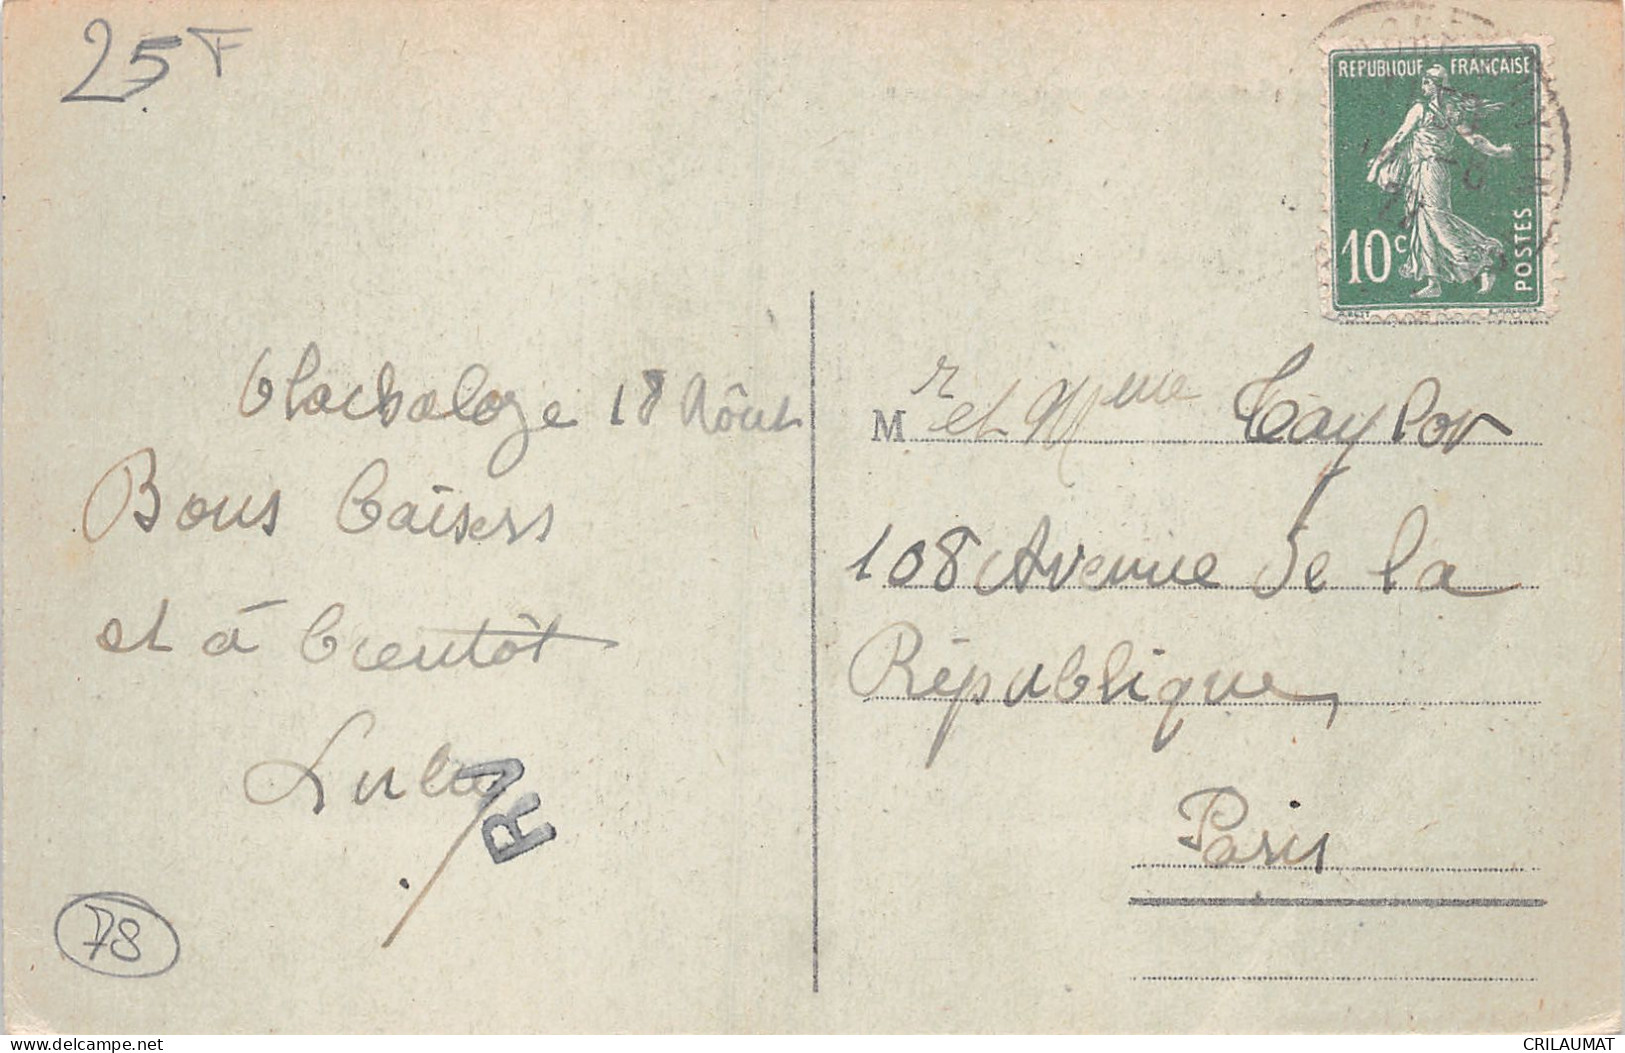 25 F
RÉPUBLIQUE FRANÇAISE
10c
POSTES
18 Août
Bons baisers
et à bientôt
Lulu
RV
78
Mr et Mme Taylor
108 Avenue de la
République,
Paris
delcampe.net
CRILAUMAT